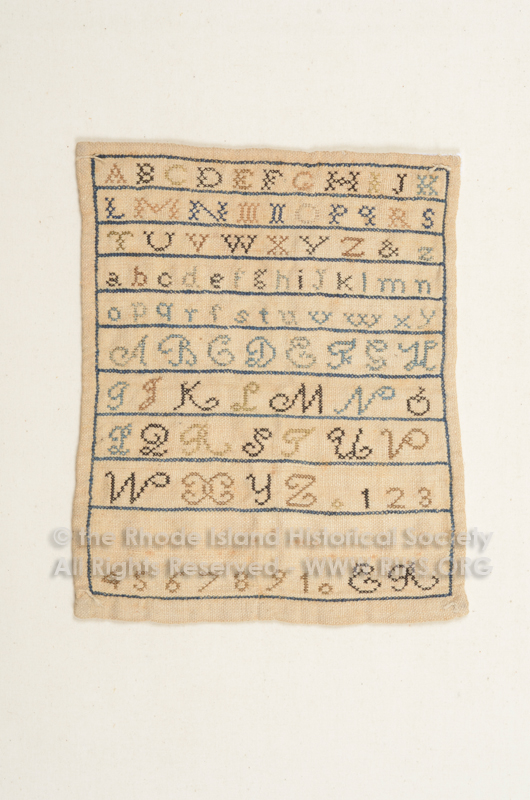 A B C D E F G H I J K
L M N M II O P Q R S
T U V W X Y Z & z
a b c d e f g h i j k l m n
o p q r ſ s t u v w x y
A B C D E F G H
I J K L M N O
P Q R S T U V
W X Y Z . 1 2 3
© The Rhode Island Historical Society
All Rights Reserved WWW.RIHS.ORG
4 5 6 7 8 9 1 0 E R